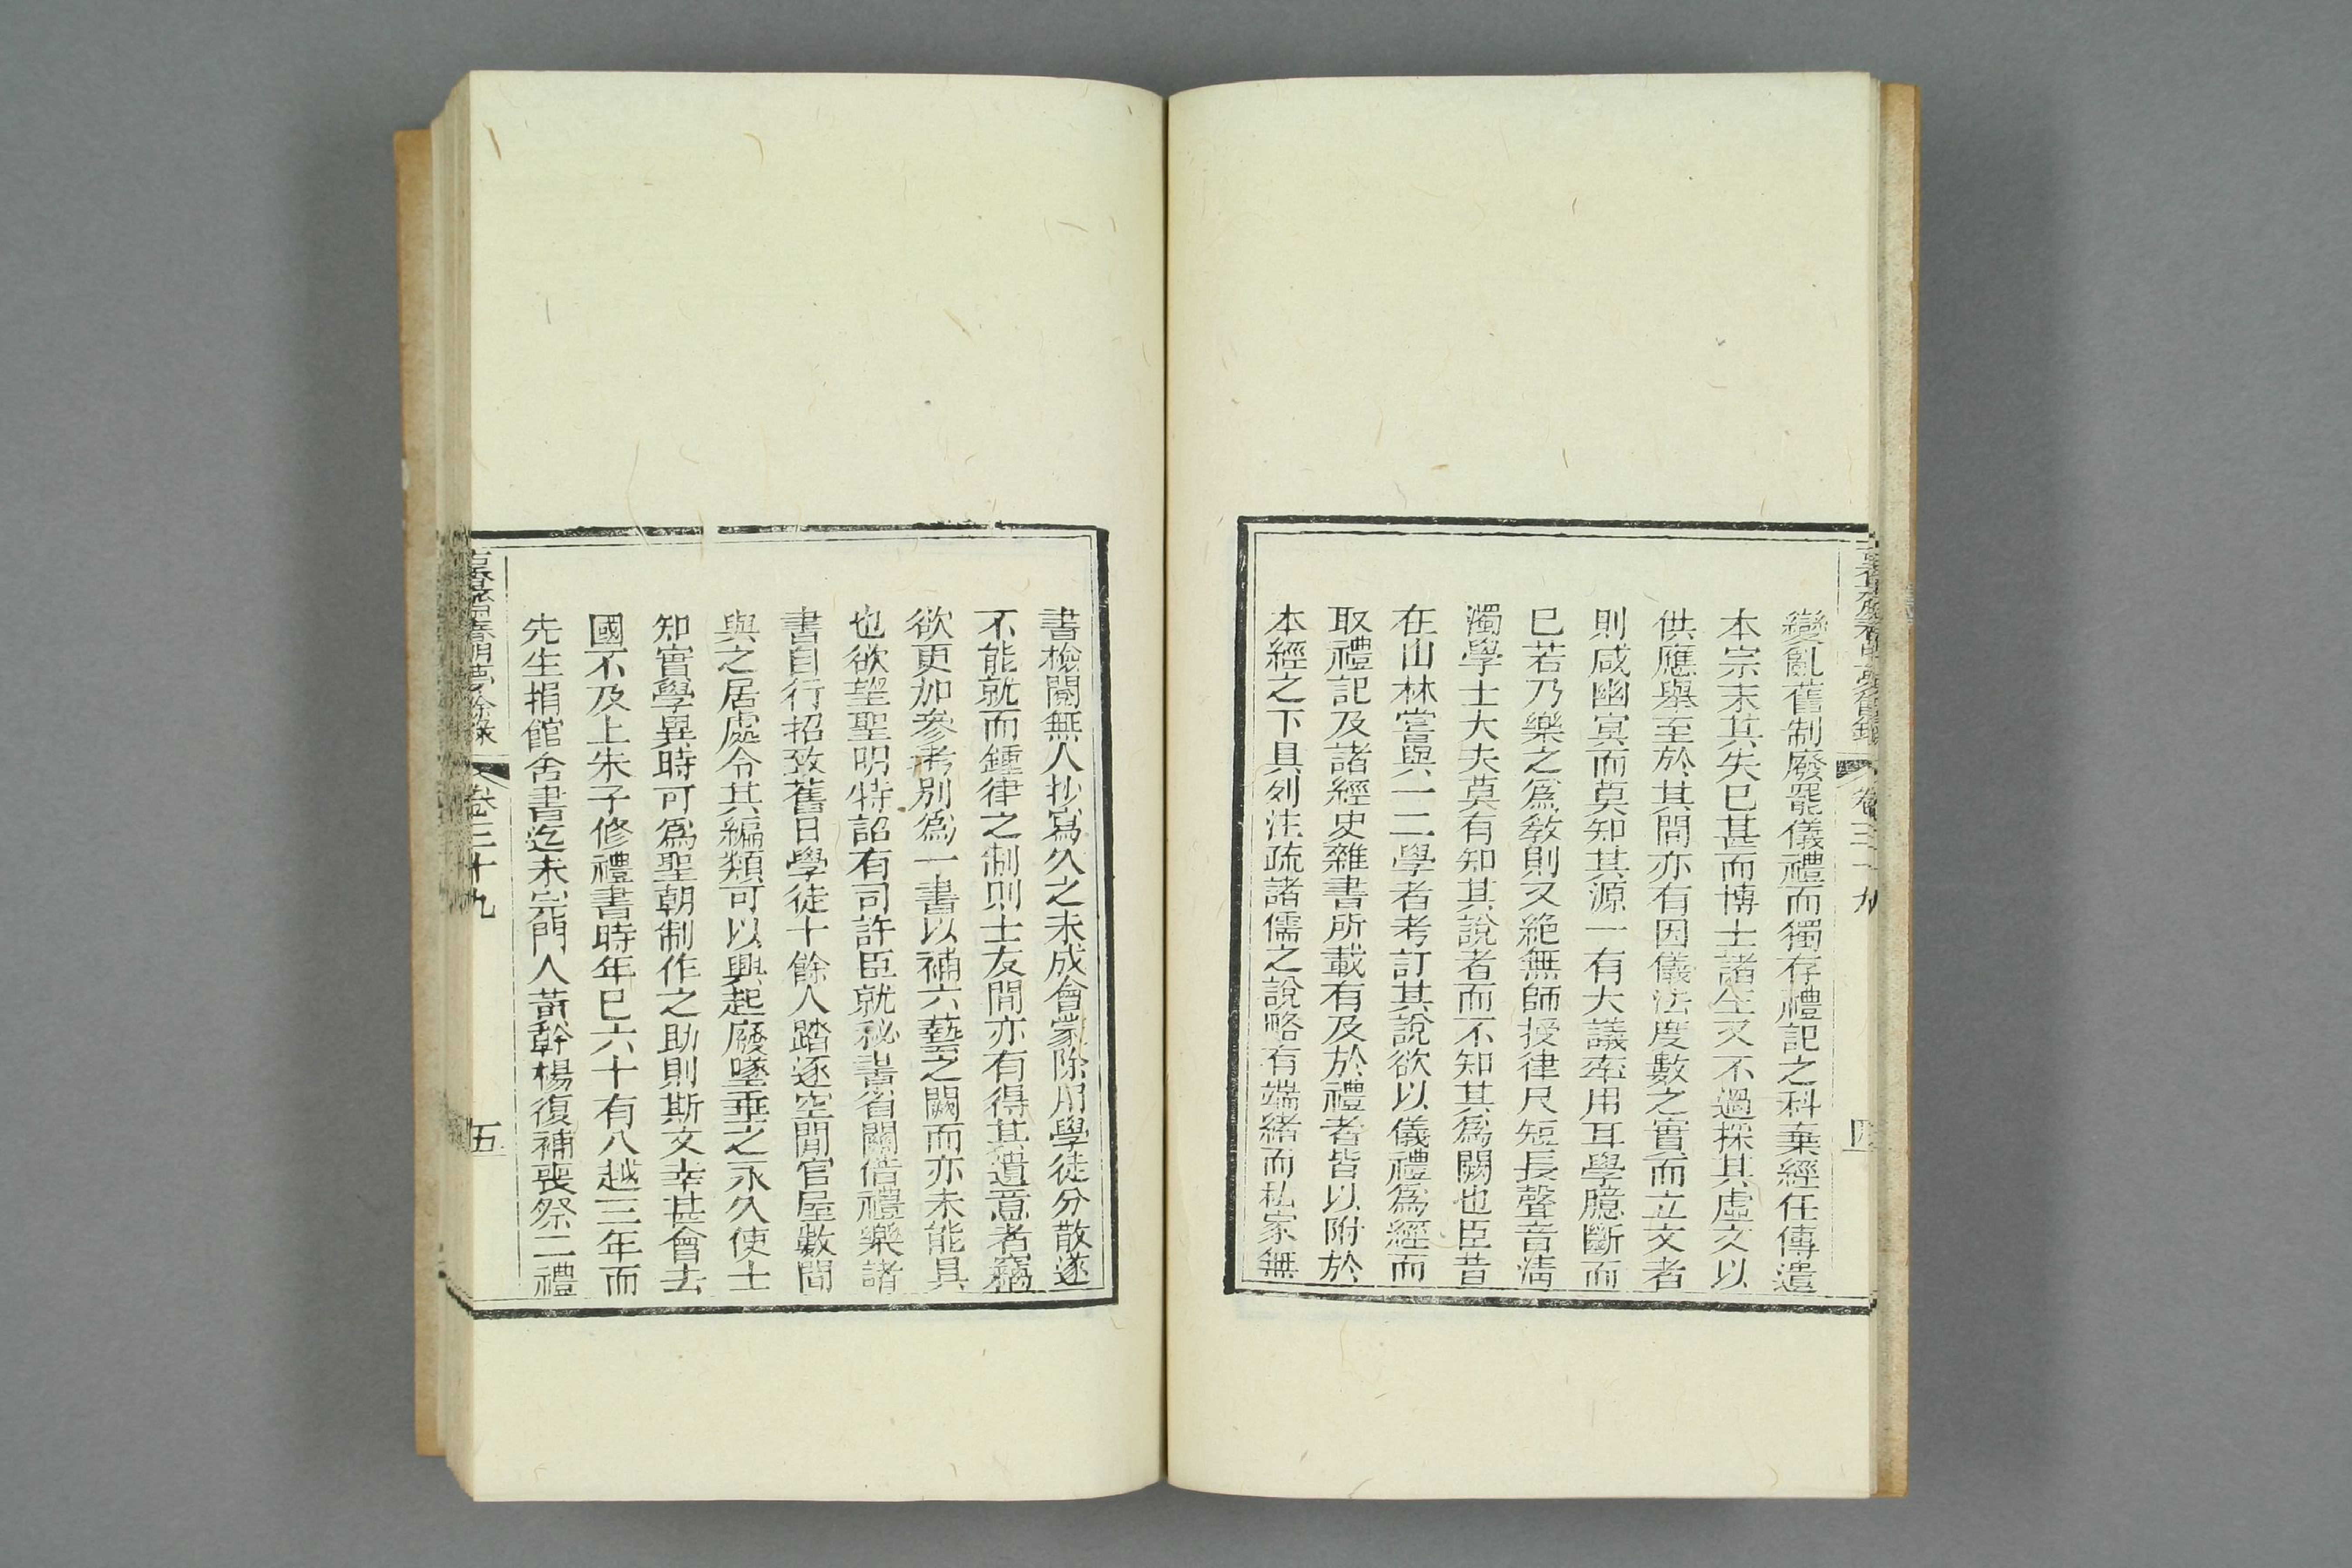 變亂舊制廢罷儀禮而獨存禮記之科棄經任傳遺
本宗末其失已甚而博士諸生又不過採其虛文以
供應舉至於其間亦有因儀法度數之實而立文者
則咸幽冥而莫知其源一有大議率用耳學臆斷而
已若乃樂之爲敎則又絶無師授律尺短長聲音淸
濁學士大夫莫有知其說者而不知其爲闕也臣昔
在山林嘗與一二學者考訂其說欲以儀禮爲經而
取禮記及諸經史雜書所載有及於禮者皆以附於
本經之下具列注疏諸儒之說略有端緒而私家無
書檢閱無人抄寫久之未成會蒙除用學徒分散遂
不能就而鍾律之制則士友間亦有得其遺意者竊
欲更加參考別爲一書以補六藝之闕而亦未能具
也欲望聖明特詔有司許臣就祕書省關借禮樂諸
書自行招致舊日學徒十餘人踏逐空閒官屋數間
與之居處令其編類可以興起廢墜垂之永久使士
知實學異時可爲聖朝制作之助則斯文幸甚會去
國不及上朱子修禮書時年已六十有八越三年而
先生捐館舍書迄未完門人黃幹楊復補喪祭二禮
春明夢餘錄
卷三十九
五